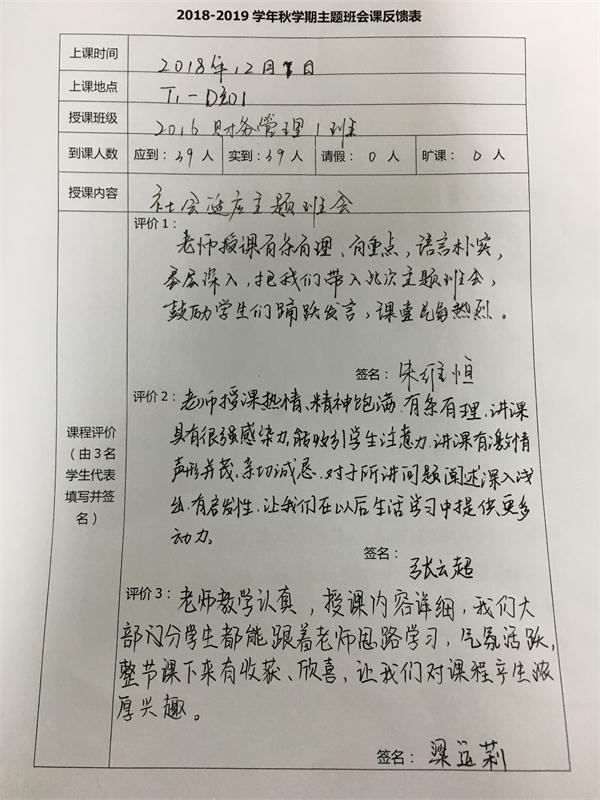 2018-2019 学年秋学期主题班会课反馈表
上课时间 2018年12月 日
上课地点 T1-D
授课班级 2016 财务管理1班
到课人数 应到：39 人 实到：39 人 请假：0 人 旷课：0 人
授课内容 社会适应主题班会
课程评价
（由3名
学生代表
填写并签
名）
评价1：
老师授课有条有理、有重点，语言朴实，
基层深入，把我们带入此次主题班会，
鼓励学生们踊跃发言，课堂气氛热烈。
签名：朱维恒
评价2：老师授课热情、精神饱满、有条有理、讲课
具有很强感染力、能吸引学生注意力、讲课有激情
声形并茂、亲切诚恳、对于所讲问题阐述深入浅
出、有启发性、让我们在以后生活学习中提供更多
动力。
签名：
张云超
评价3：老师教学认真，授课内容详细，我们大
部门分学生都能跟着老师思路学习，气氛活跃，
整节课下来有收获、欣喜，让我们对课程产生浓
厚兴趣。
签名：梁 莉